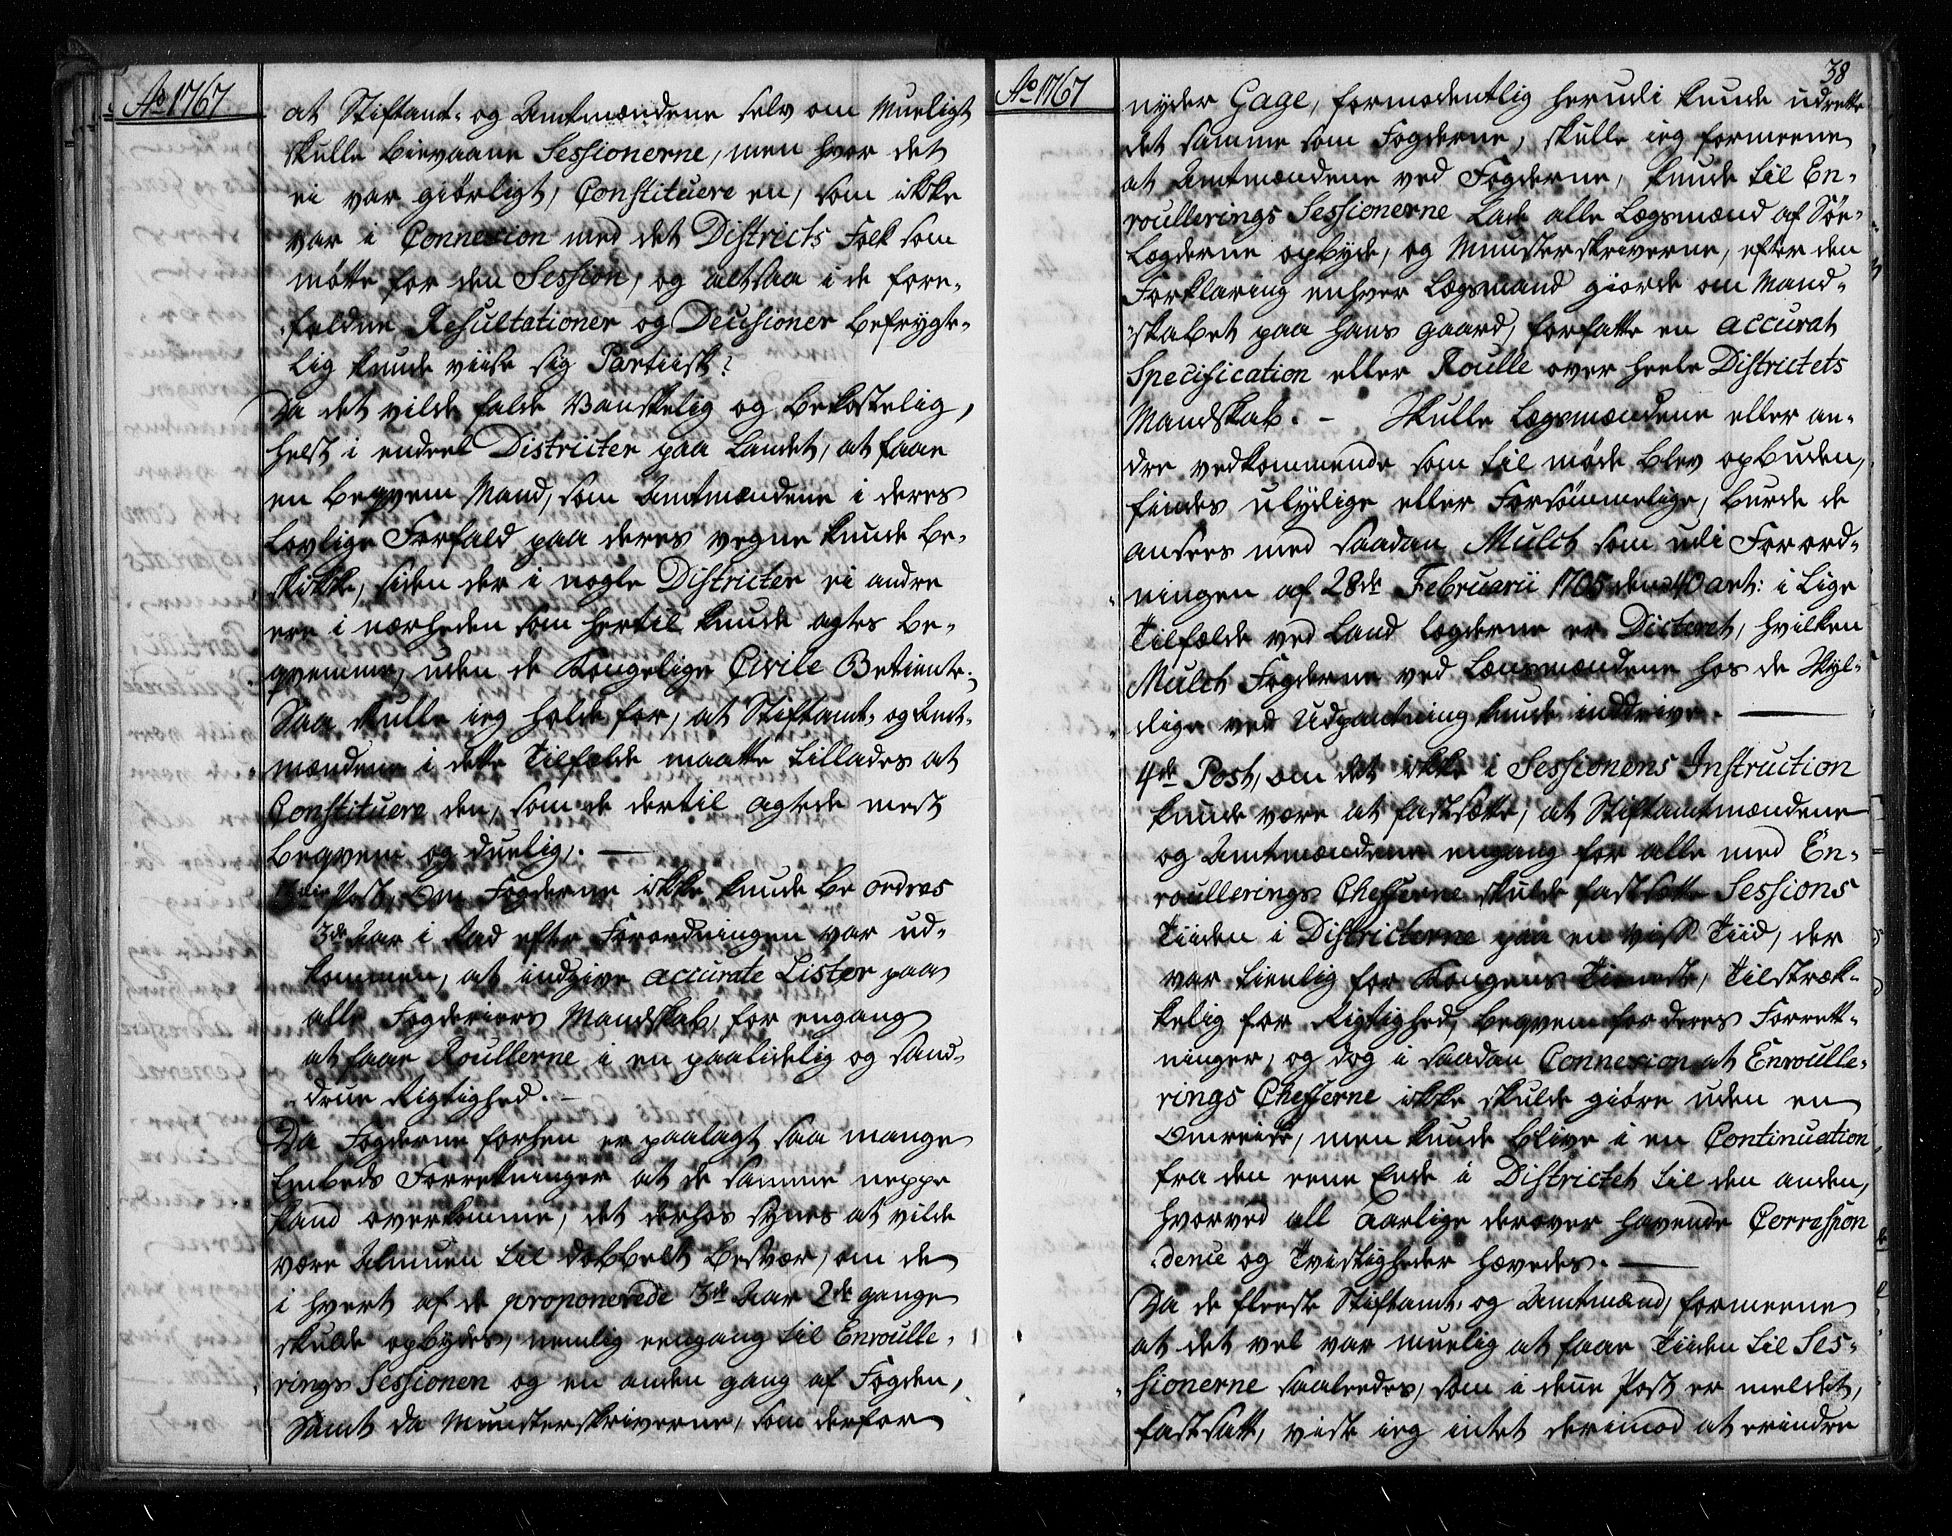 Ao 1767
at Stiftamt- og Amtmændene selv om Mueligt
skulle bievaane Sessionerne, men hvor det
ei var giørligt, Constituere en, som ikke
var i Connexion med det Districts Folk som
møtte for den Session, og altsaa i de fore-
faldne Resultationer og Decisioner befrygte-
lig kunde viise sig Partiisk?
Da det vilde falde Vanskelig og bekostelig,
helst i endeel Districter paa Landet, at faae
en beqvem Mand, som Amtmændene i deres
Lovlige Forfald paa deres vegne kunde be-
skikke, siden der i nogle Districter ei andre
ere i nærheden som hertil kunde agtes be-
qvemme, uden de Kongelige Civile Betiente;
Saa skulle ieg holde for, at Stiftamt- og Amt-
mændene i dette Tilfælde maatte tillades at
Constituere den, som de dertil agtede mest
beqvem og duelig. —
3die Post, Om Fogderne ikke kunde beordres
3de Aar i Rad efter Forordningen var ud-
kommen, at indgive accurate Lister paa
alle Fogderiers Mandskab, for engang
at faae Roullerne i en paalidelig og sand-
drue Rigtighed. —
Da Fogderne forhen er paalagt saa mange
Embeds Forretninger at de samme neppe
kand overkomme, det derhos synes at vilde
være Almuen til dobbelt Besvær, om de
i hvert af de proponerede 3de Aar 2de gange
skulde opbydes, nemlig eengang til Enroulle-
rings Sessionen og en anden gang af Fogden,
Samt da Munsterskriverne, som derfor
Ao 1767
38
nyder Gage, formodentlig herudi kunde udrette
det samme som Fogderne, skulle ieg formeene
at Amtmændene ved Fogderne, kunde til En-
roullerings Sessionerne lade alle Lægsmænd af Søe-
Lægderne opbyde, og Munsterskriverne, efter den
Forklaring enhver Lægsmand giorde om Mand-
skabet paa hans gaard, forfatte en accurat
Specification eller Roulle over heele Districtets
Mandskab. – Skulle Lægsmændene eller an-
dre vedkommende som til møde blev opbuden,
findes ulydige eller Forsømmelige, burde de
ansees med saadan Mulct som udi Forord-
ningen af 28de Februarii 1705 dens 40 art: i Lige
Tilfælde ved Land Lægderne er Dicteret, hvilken
Mulct Fogderne ved Lænsmændene hos de Skyl-
dige ved Udpantning kunde inddrive. —
4de Post, om det ikke i Sessionens Instruction
kunde være at fastsætte, at Stiftamtmændene
og Amtmændene engang for alle med En-
roullerings Chefferne skulde fastsætte Sessions
Tiiden i Districterne paa en viss Tiid, der
var tienlig for Kongens Tieneste, Tilstræk-
kelig for Rigtighed, beqvem for deres Forrett-
ninger, og dog i saadan Connexion at Enroulle-
rings Chefferne ikke skulde giøre uden en
Omreise, men kunde blive i en Continuation
fra den eene Ende i Districtet til den anden,
hvorved all Aarlige derover havende Correspon
dence og Tvistigheder hævedes. —
Da de fleeste Stiftamt- og Amtmænd, formeene
at det vel var muelig at faae Tiiden til Ses-
sionerne saaledes, som i denne Post er meldet,
fastsatt, viste ieg intet derimod at erindre